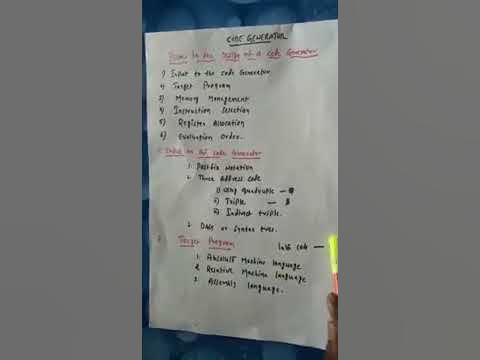 CODE GENERATOR
Issues in the design of a code Generator
1) Input to the code Generator
2) Target Program
3) Memory Management
4) Instruction Selection
5) Register Allocation
6) Evaluation Order.
1. Input to the code Generator
1. Postfix Notation
2. Three Address code
i) Using quadruple —
ii) Triple —
iii) Indirect triple.
3. DAGs or Syntax trees.
2. Target Program
code —
1. Absolute Machine language
2. Relative Machine language
3. Assembly language.